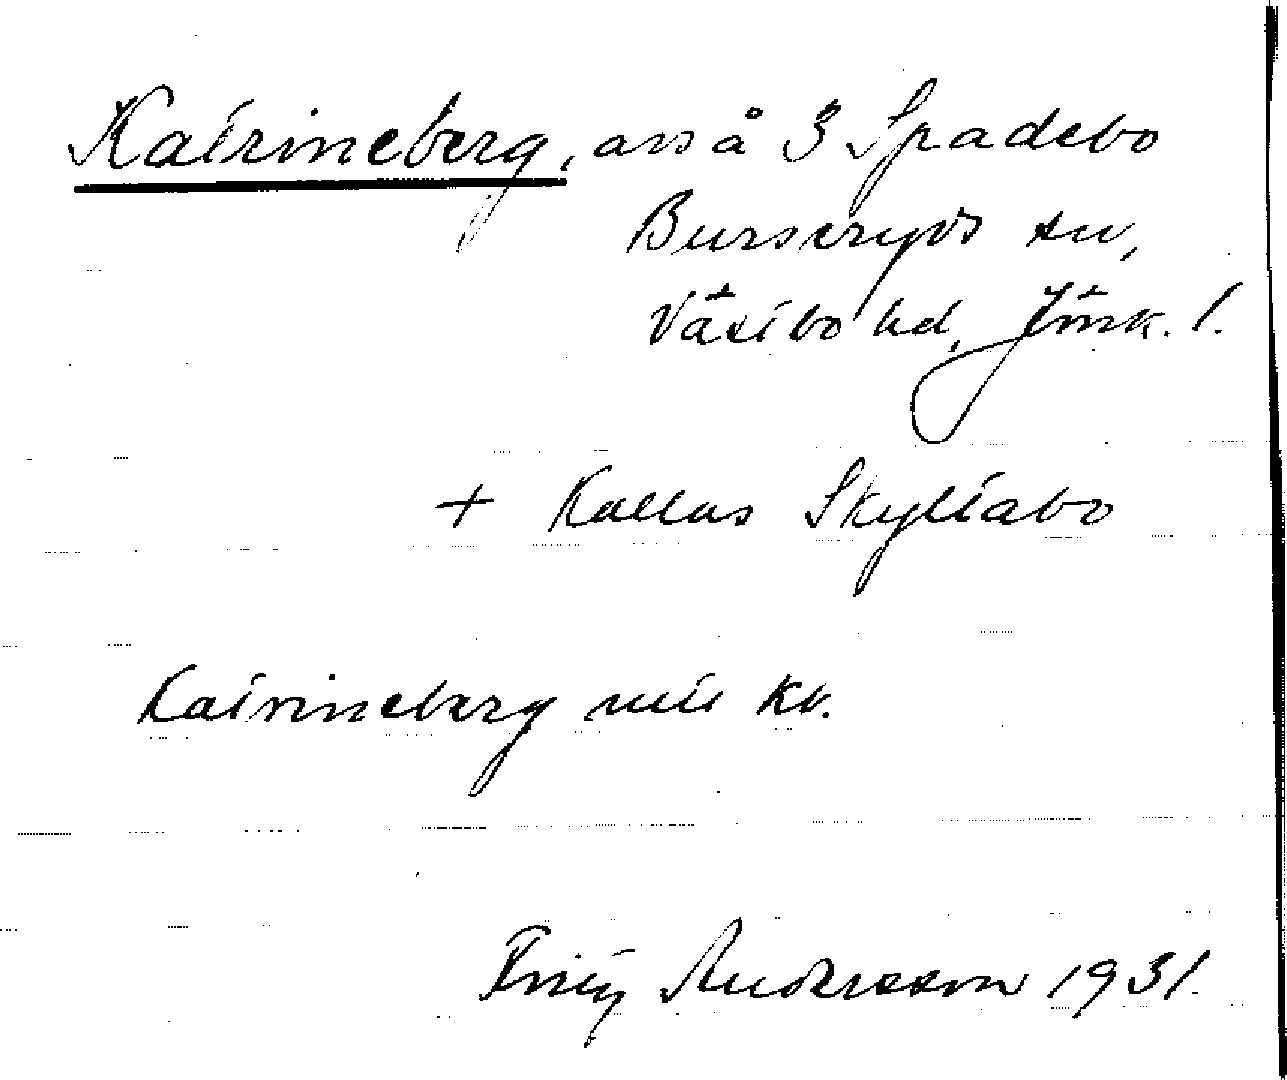 Katrineberg, avs å 3 Spadebo
Burseryds sn,
Västbo hd, Jönk. l.
+ Kallas Skyltabo
Katrineberg nu kv.
Fritz Andersson 1931.